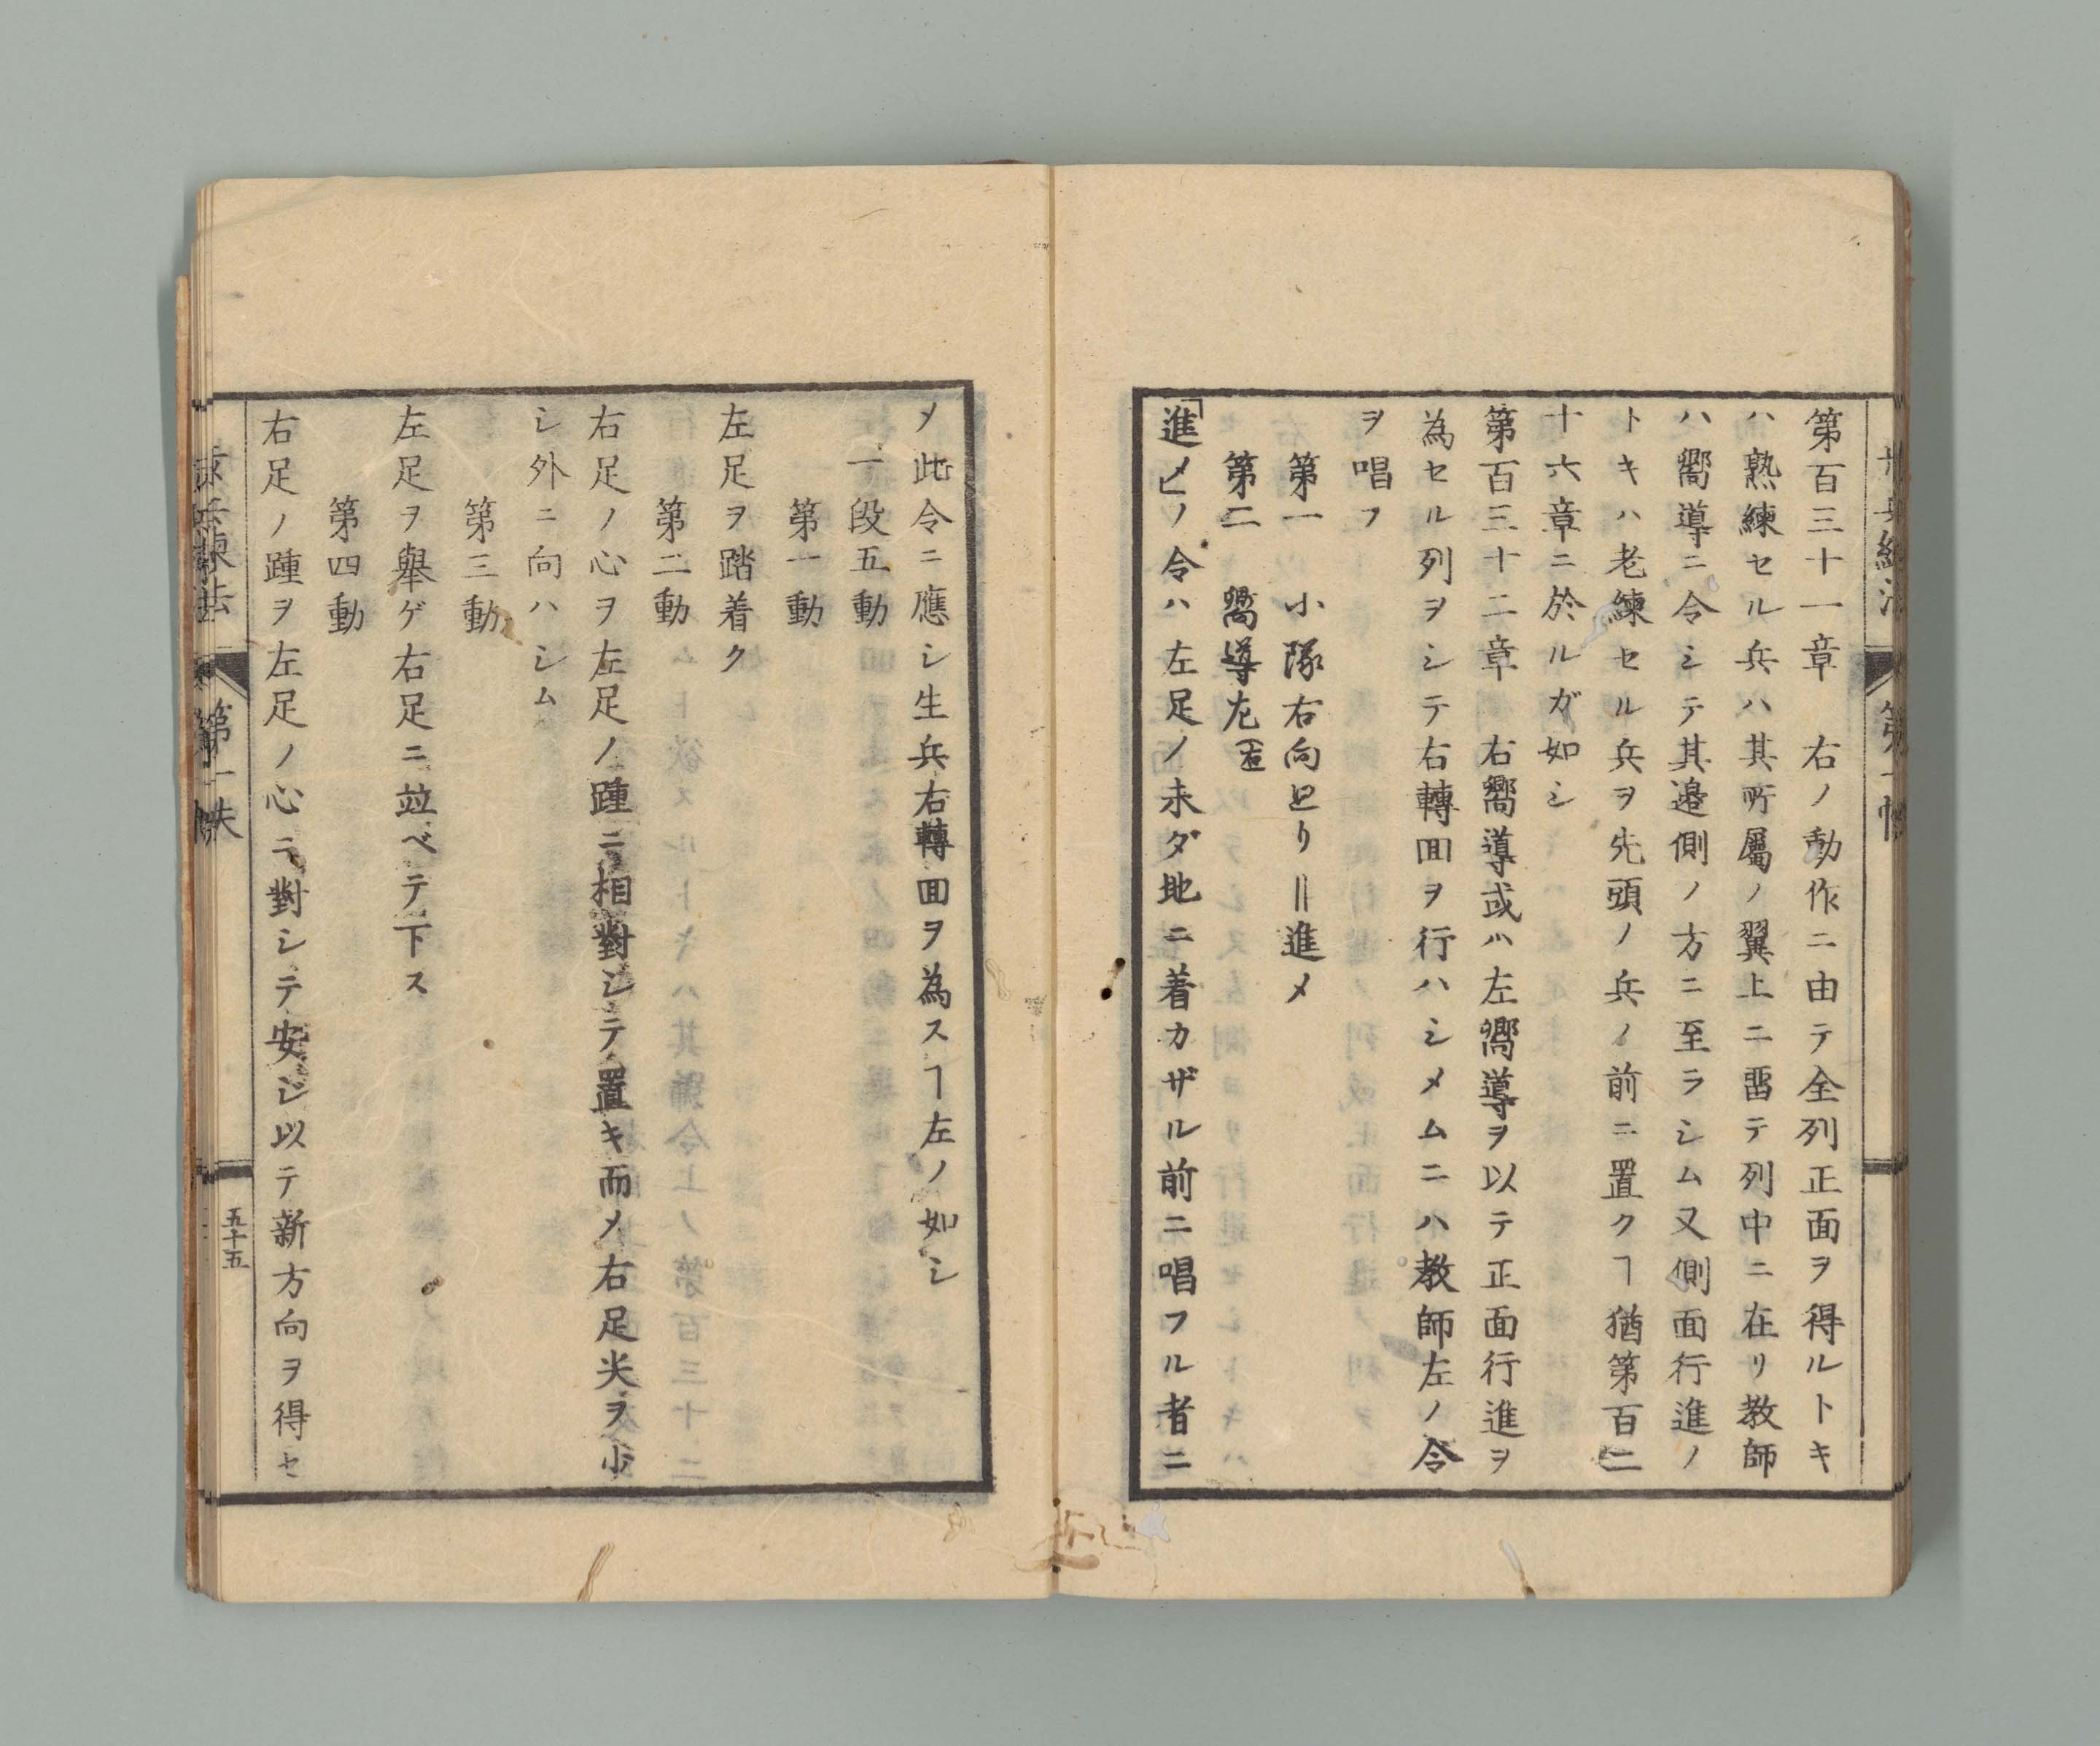 第百三十一章　右ノ動作ニ由テ全列正面ヲ得ルトキ
ハ熟練セル兵ハ其所屬ノ翼上ニ畱テ列中ニ在リ教師
ハ嚮導ニ令シテ其邉側ノ方ニ至ラシム又側面行進ノ
トキハ老練セル兵ヲ先頭ノ兵ノ前ニ置クヿ猶第百二
十六章ニ於ルガ如シ
第百三十二章　右嚮導或ハ左嚮導ヲ以テ正面行進ヲ
為セル列ヲシテ右轉囬ヲ行ハシメムニハ教師左ノ令
ヲ唱フ
第一　小隊右向ヒ――進メ
第二　嚮導左
「進メ」ノ令ハ左足ノ未ダ地ニ着カザル前ニ唱フル者ニ
〆此令ニ應シ生兵右轉囬ヲ為スヿ左ノ如シ
一段五動
第一動
左足ヲ踏着ク
第二動
右足ノ心ヲ左足ノ踵ニ相對シテ置キ而〆右足尖ヲ少
シ外ニ向ハシム
第三動
左足ヲ舉ゲ右足ニ竝ベテ下ス
第四動
右足ノ踵ヲ左足ノ心ニ對シテ安ジ以テ新方向ヲ得セ
第一帙
五十五